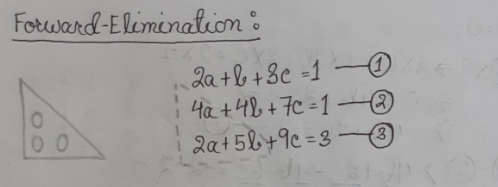 Forward-Elimination:
2a + b + 3c = 1 — ①
4a + 4b + 7c = 1 — ②
2a + 5b + 9c = 3 — ③
0
0 0